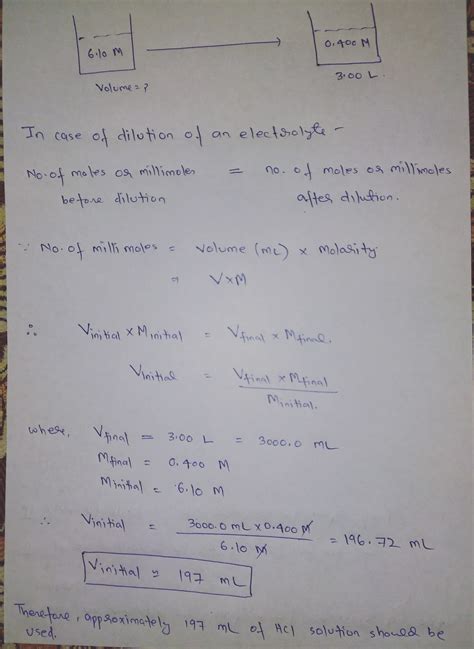 6.10 M
0.400 M
Volume = ?
3.00 L
In case of dilution of an electrolyte -
No. of moles or millimoles = no. of moles or millimoles
before dilution after dilution.
∵ No. of millimoles = volume (mL) × molarity
= V×M
∴ Vinitial × Minitial = Vfinal × Mfinal.
Vinitial = Vfinal × Mfinal
Minitial.
where, Vfinal = 3.00 L = 3000.0 mL
Mfinal = 0.400 M
Minitial = 6.10 M
∴ Vinitial = 3000.0 mL × 0.400 M = 196.72 mL
6.10 M
Vinitial ≈ 197 mL
Therefore, approximately 197 mL of HCl solution should be
used.